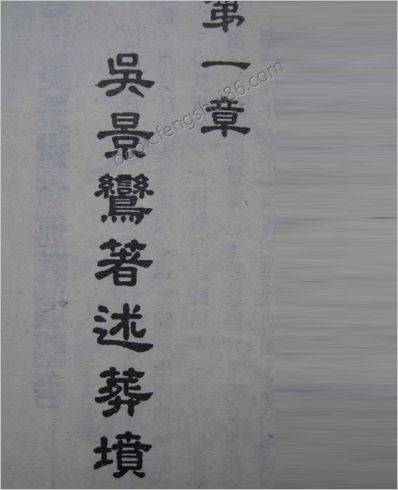 第一章
吳景鸞著述葬墳
book.fengshui86.com